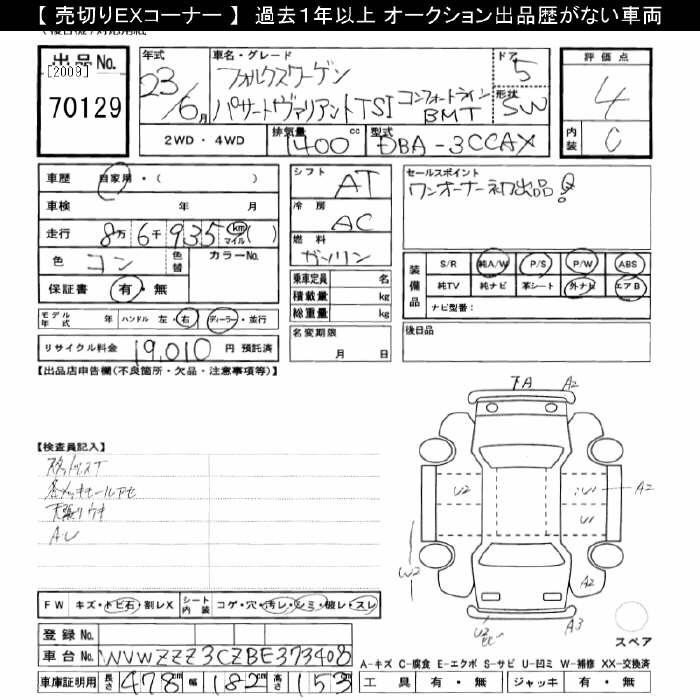 【 売切りEXコーナー 】 過去1年以上 オークション出品歴がない車両
出品No.
[2009]
70129
年式
23/6月
車名・グレード
フォルクスワーゲン
パサートヴァリアントTSI コンフォートライン
BMT
ドア
5
形状
SW
評価点
4
内装
C
2WD ・ 4WD
排気量
1400cc
型式
DBA-3CCAX
車歴 自家用・( )
車検 年 月
走行 8万6千935 km マイル ( )
色 コン 色替 カラーNo.
保証書 有・無
モデル年式 年 ハンドル 左・右 ディーラー・並行
リサイクル料金 19,010 円 預託済
シフト AT
冷房 AC
燃料 ガソリン
乗車定員 名
積載量 kg
総重量 kg
名変期限
月 日
セールスポイント
ワンオーナー初出品!
装備品
S/R 純A/W P/S P/W ABS
純TV 純ナビ 革シート 外ナビ エアB
ナビ型番:
後日品
【出品店申告欄(不良箇所・欠品・注意事項等)】
【検査員記入】
天張りウキ
FA A2
U2 A2
U1
W2
A2
U2 A3
スペア
FW キズ・トビ石・割レX シート内装 コゲ・穴・汚レ・シミ・破レ・スレ
登録 No.
車台 No. WVWZZZ3CZBE373408
車庫証明用 長さ 478cm 幅 182cm 高さ 153cm
A-キズ C-腐食 E-エクボ S-サビ U-凹ミ W-補修 XX-交換済
工具 有・無 ジャッキ 有・無